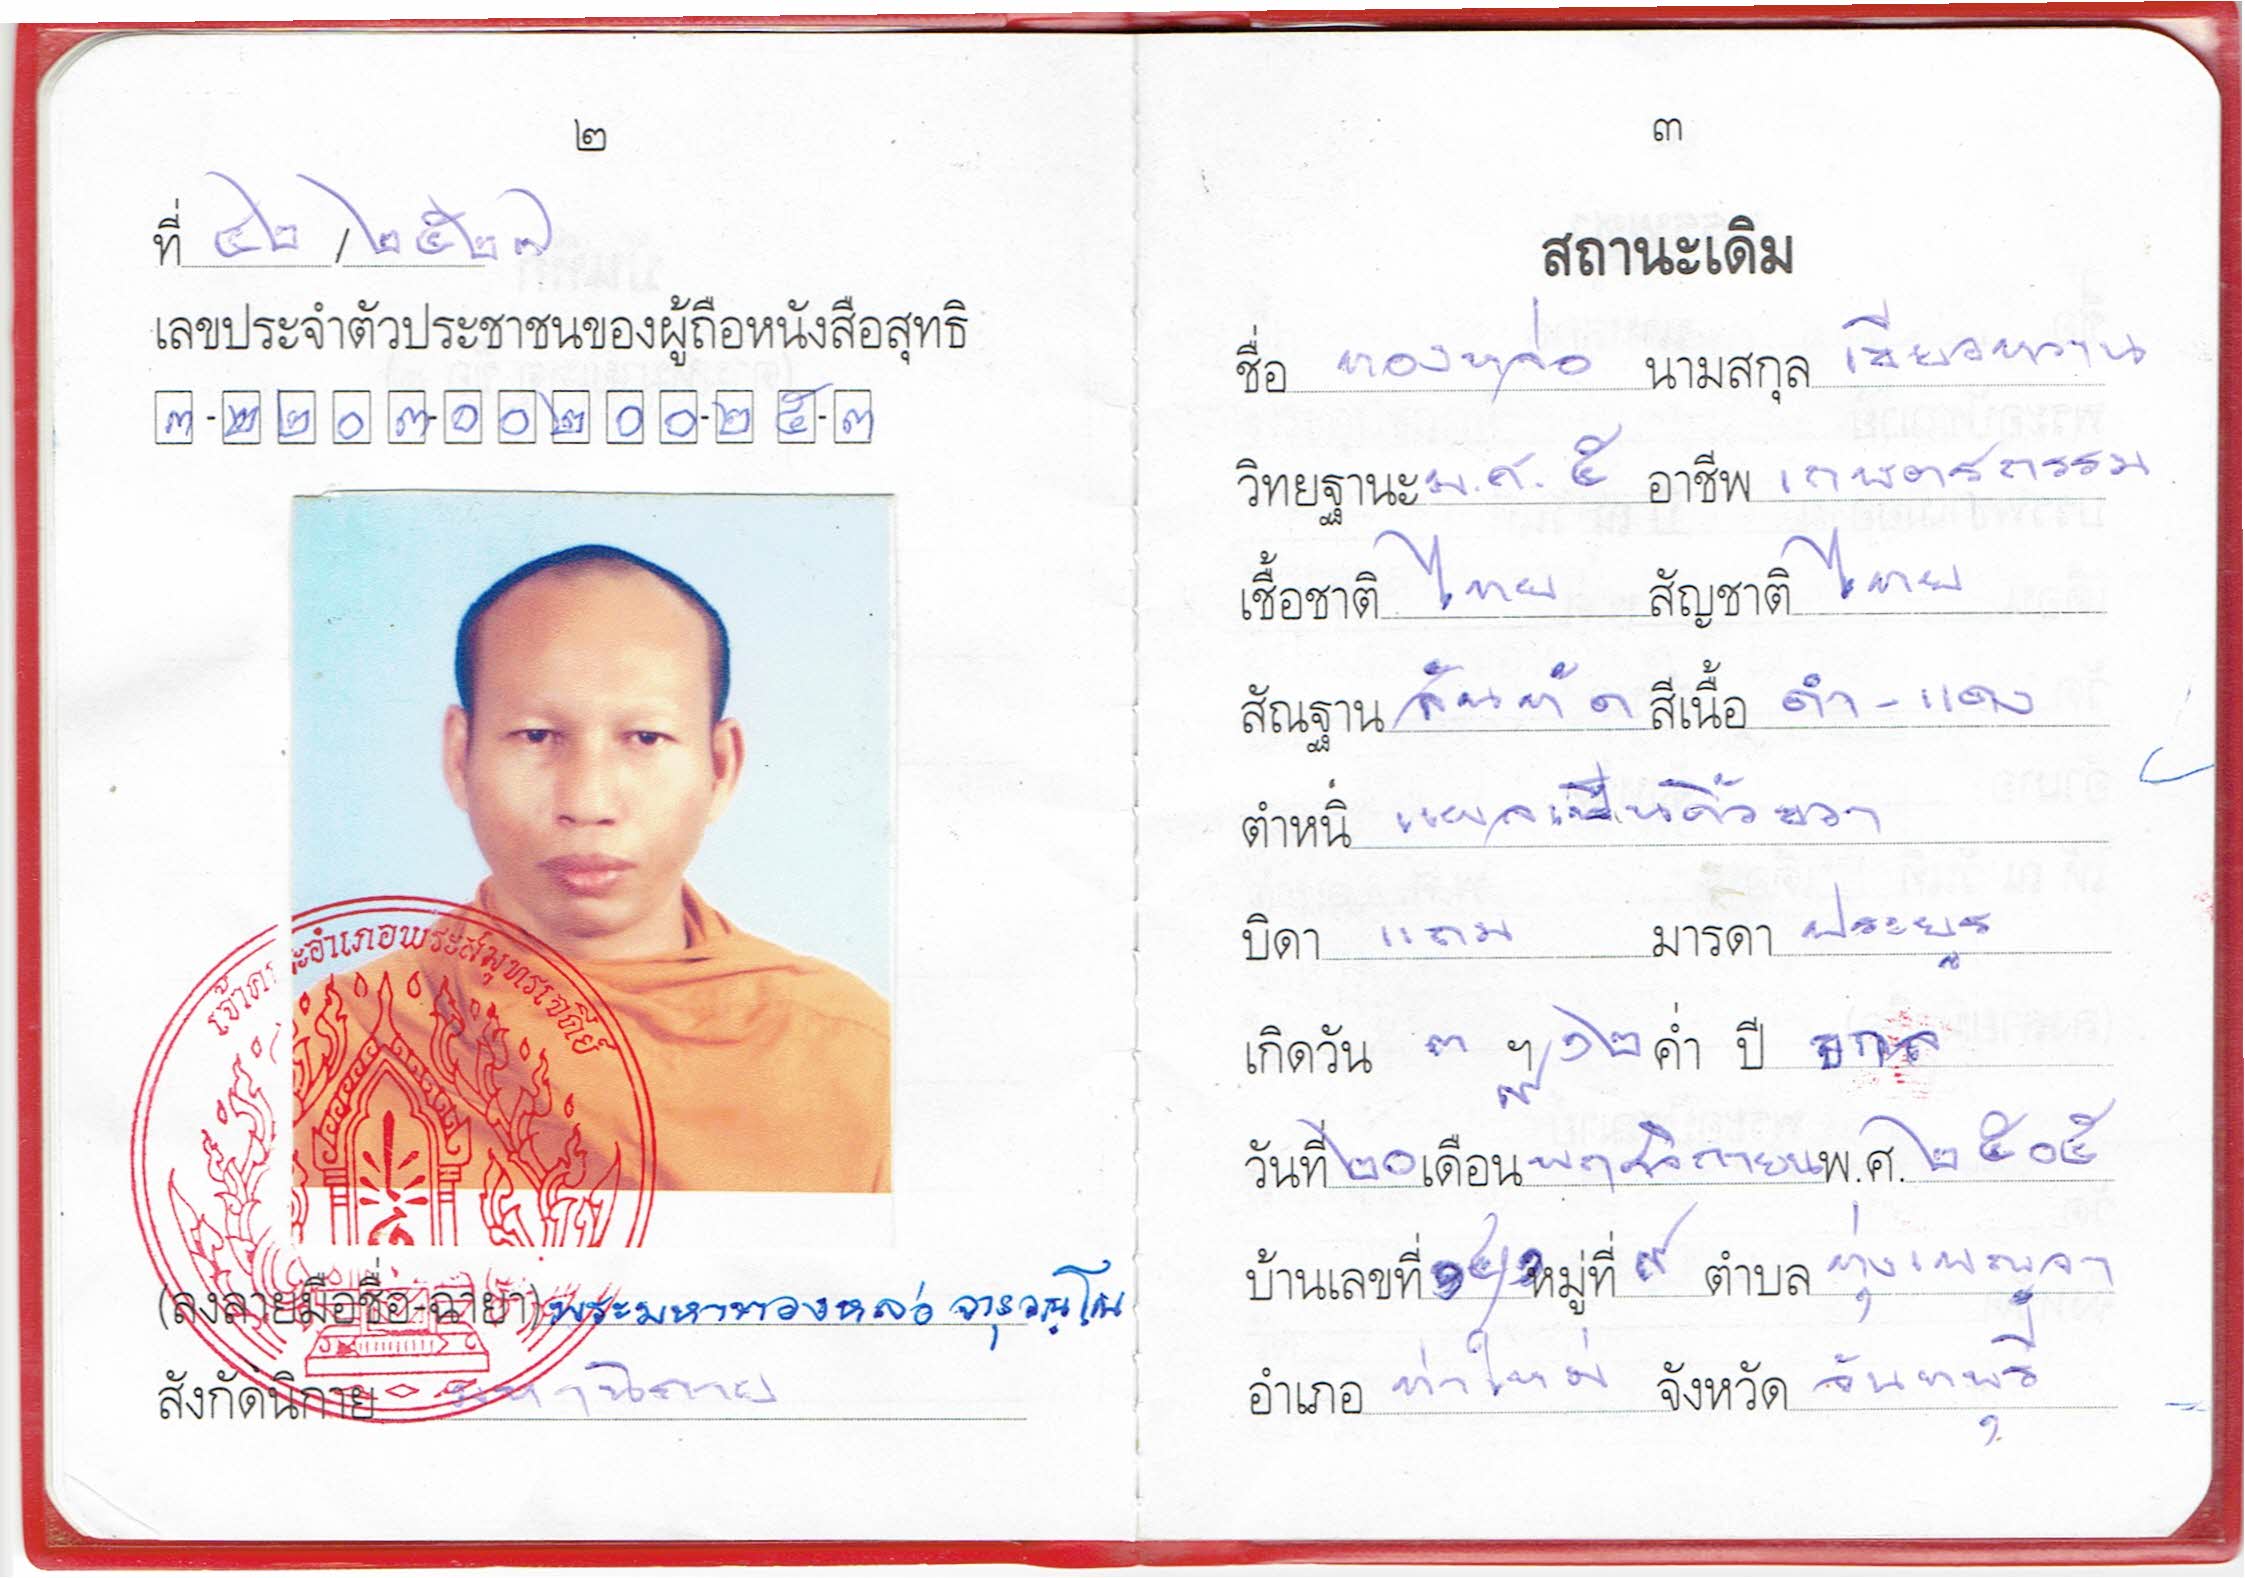 ๒
ที่ ๔๒ / ๒๕๒๗
เลขประจำตัวประชาชนของผู้ถือหนังสือสุทธิ
๓-๒๒๐๓-๐๐๒๐๐-๒๕-๓
เจ้าคณะอำเภอพระสมุทรเจดีย์
(ลงลายมือชื่อ-ฉายา) พระมหาทองหล่อ จารุวณฺโณ
สังกัดนิกาย มหานิกาย
๓
สถานะเดิม
ชื่อ ทองหล่อ นามสกุล เขียวหวาน
วิทยฐานะ ม.ศ.๕ อาชีพ เกษตรกรรม
เชื้อชาติ ไทย สัญชาติ ไทย
สัณฐาน สันทัด สีเนื้อ ดำ-แดง
ตำหนิ แผลเป็นคิ้วขวา
บิดา แถม มารดา ประยูร
เกิดวัน ๓ ฯ ๑๒ ค่ำ ปี ขาล
วันที่ ๒๐ เดือน พฤศจิกายน พ.ศ. ๒๕๐๕
บ้านเลขที่ หมู่ที่ ๙ ตำบล ทุ่งเบญจา
อำเภอ ท่าใหม่ จังหวัด จันทบุรี